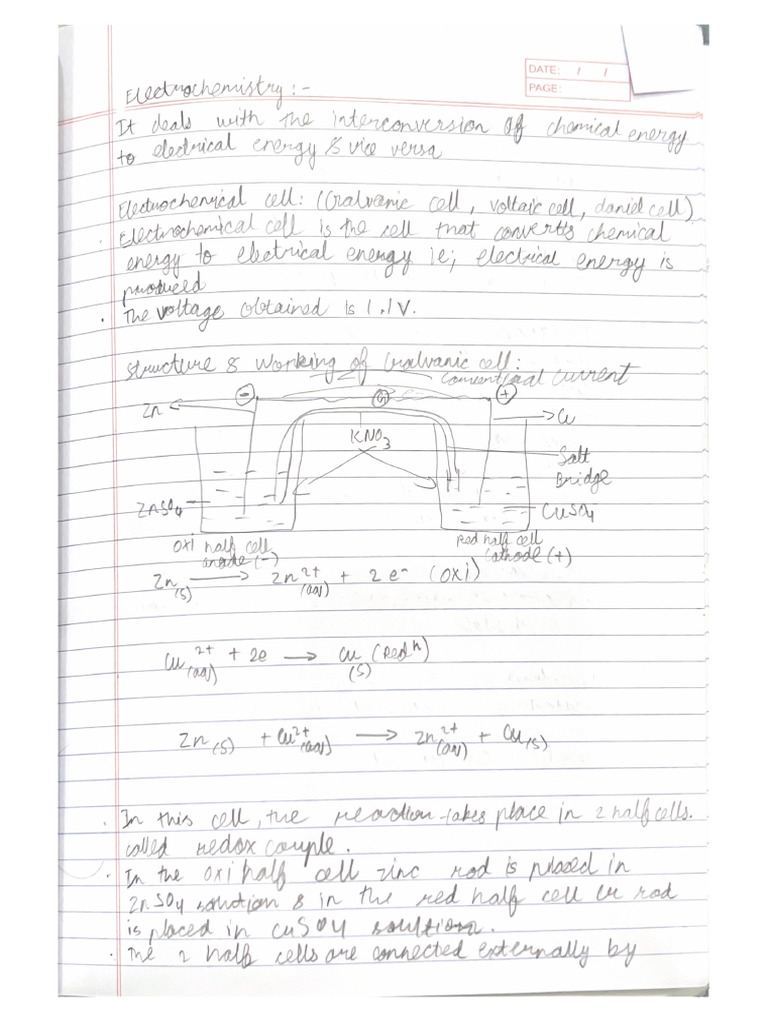 DATE: / /
PAGE:
Electrochemistry:-
It deals with the interconversion of chemical energy
to electrical energy & vice versa
Electrochemical cell: (Gralvanic cell, voltaic cell, daniel cell)
. Electrochemical cell is the cell that converts chemical
energy to electrical energy ie; electrical energy is
produced
. The voltage obtained is 1.1V.
Structure & Working of Gralvanic cell:
Conventional current
Zn - G + Cu
KNO3
Salt
Bridge
ZnSO4 CuSO4
oxi half cell red half cell
anode (-) Cathode (+)
Zn(s) → Zn2+(aq) + 2e- (oxi)
Cu2+(aq) + 2e → Cu(s) (Redn)
Zn(s) + Cu2+(aq) → Zn2+(aq) + Cu(s)
. In this cell, the reaction takes place in 2 half cells.
called redox couple.
. In the oxi half cell zinc rod is placed in
ZnSO4 solution & in the red half cell Cu rod
is placed in CuSO4 soultion.
. The 2 half cells are connected externally by